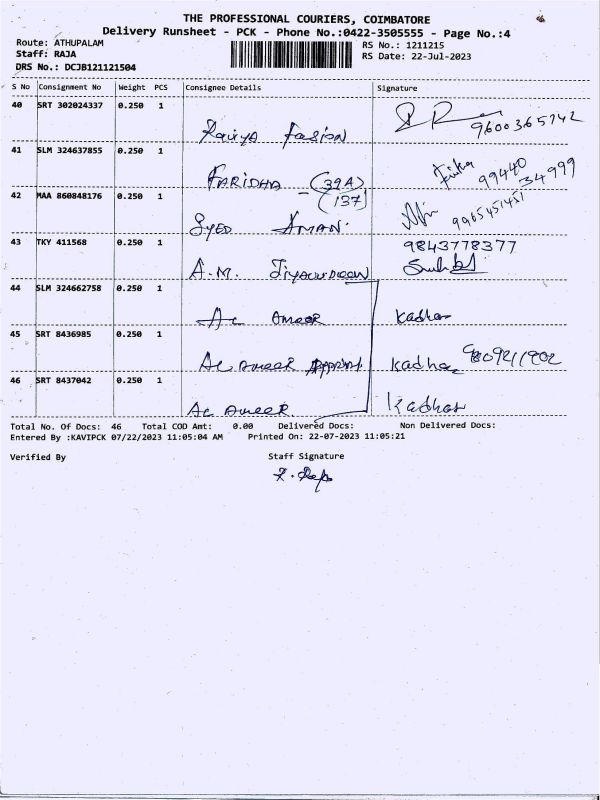 THE PROFESSIONAL COURIERS, COIMBATORE
Delivery Runsheet - PCK - Phone No.:0422-3505555 - Page No.:4
Route: ATHUPALAM
RS No.: 1211215
Staff: RAJA
RS Date: 22-Jul-2023
DRS No.: DCJB121121504
S No Consignment No Weight PCS Consignee Details Signature
40 SRT 302024337 0.250 1
Fasion 9600365742
41 SLM 324637855 0.250 1
FARIDHA (39A) 99440 34999
(137)
42 MAA 860848176 0.250 1
SYED AMAN 9965451451
43 TKY 411568 0.250 1 9843778377
A.M.
44 SLM 324662758 0.250 1
Ac Ameer Kadhar
45 SRT 8436985 0.250 1
Ac Ameer Kadhar
46 SRT 8437042 0.250 1
Ac Ameer Kadhar
Total No. Of Docs: 46 Total COD Amt: 0.00 Delivered Docs: Non Delivered Docs:
Entered By :KAVIPCK 07/22/2023 11:05:04 AM Printed On: 22-07-2023 11:05:21
Verified By Staff Signature